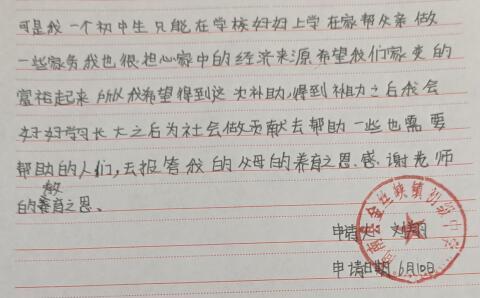 可是我一个初中生只能在学校好好上学在家帮父亲做
一些家务我也很担心家中的经济来源希望我们家变的
富裕起来所以我希望得到这次补助,得到补助之后我会
好好学习长大之后为社会做贡献去帮助一些也需要
帮助的人们,去报答我的父母的养育之恩、感谢老师
的教育之恩、
申请人
申请日期 6月10日